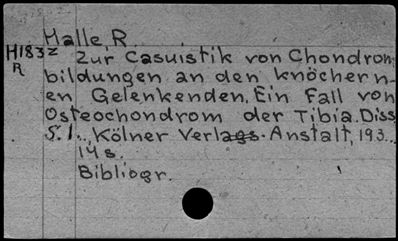 Halle, R
H183z Zur Casuistik von Chondrom-
R bildungen an den knöchern-
en Gelenkenden. Ein Fall von
Osteochondrom der Tibia. Diss
S.l., Kölner Verlags-Anstalt, 193..
14 s.
Bibliogr.